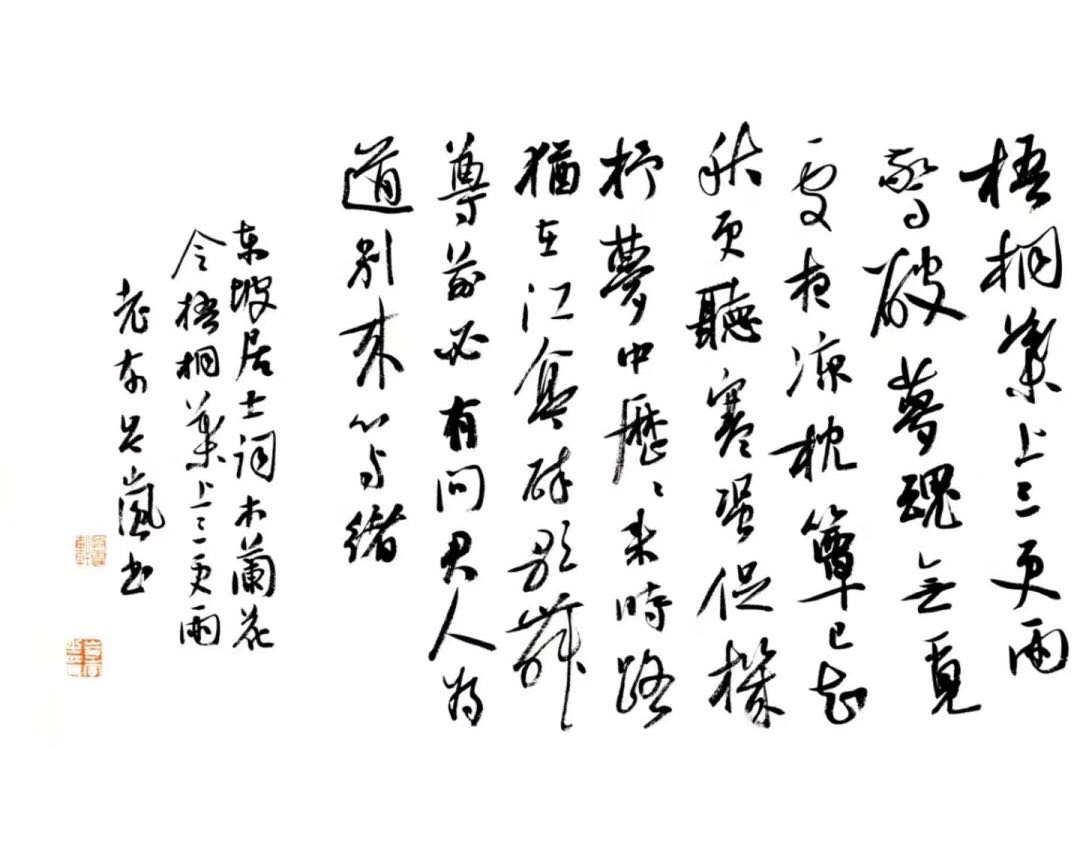 梧桐葉上三更雨
驚破夢魂無覓
處夜凉枕簟已知
秋更聽寒蛩促機
杼夢中歷〻来時路
猶在江亭醉歌舞
尊前必有問君人為
道别来心与緒
东坡居士词木蘭花
令梧桐葉上三更雨
老吴嵐书